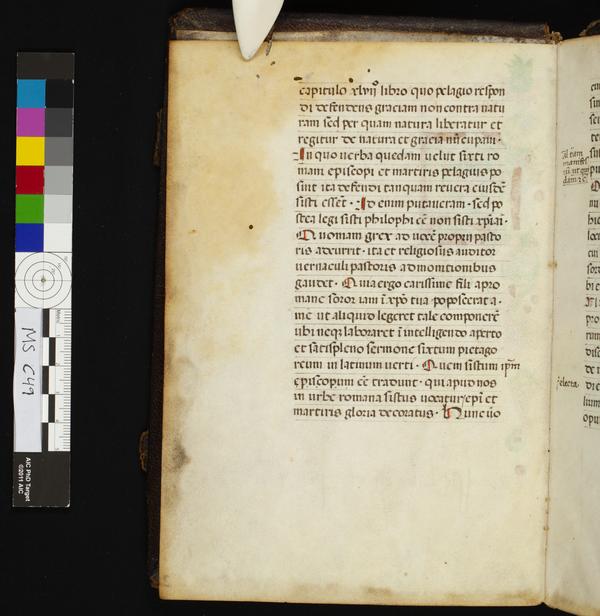 capitulo xlvij libro quo pelagio respon
di defendens graciam non contra natu
ram sed per quam natura liberatur et
regitur de natura et gracia nūcupaui.
In quo uerba quedam uelut sixti ro
mani episcopi et martiris pelagius po
suit ita defendi tanquam reuera eiusdē
sisti essēt. Id enim putaueram. sed po
stea legi sisti philosophi eē non sisti xp̄iāi.
Quoniam grex ad uocē proprij pasto
ris adcurrit. ita et religiosus auditor
uernaculi pastoris admonitionibus
gaudet. Quia ergo carissime fili apro
mane soror iam ī xp̄o tua poposcerat a
me ut aliquid legeret tale componerē
ubi neq; laboraret ī intelligendo aperto
et satis pleno sermone sixtum pietago
reum in latinum uerti. Quem sistum ip̄m
episcopum eē tradunt. qui apud nos
in urbe romana sistus uocatur ep̄i et
martiris gloria decoratus. Hunc uō
MS C49
AIC PhD Target
©2011 AIC
electa